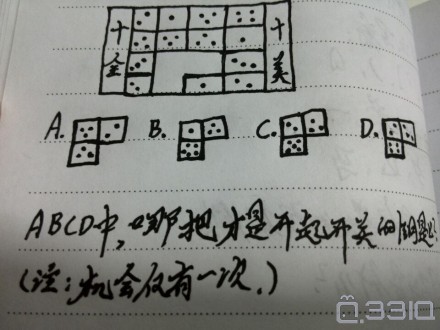 十全 十美
A. B. C. D.
ABCD中,哪把才是开起开关的钥匙!
(注:机会仅有一次.)
Q.33IQ